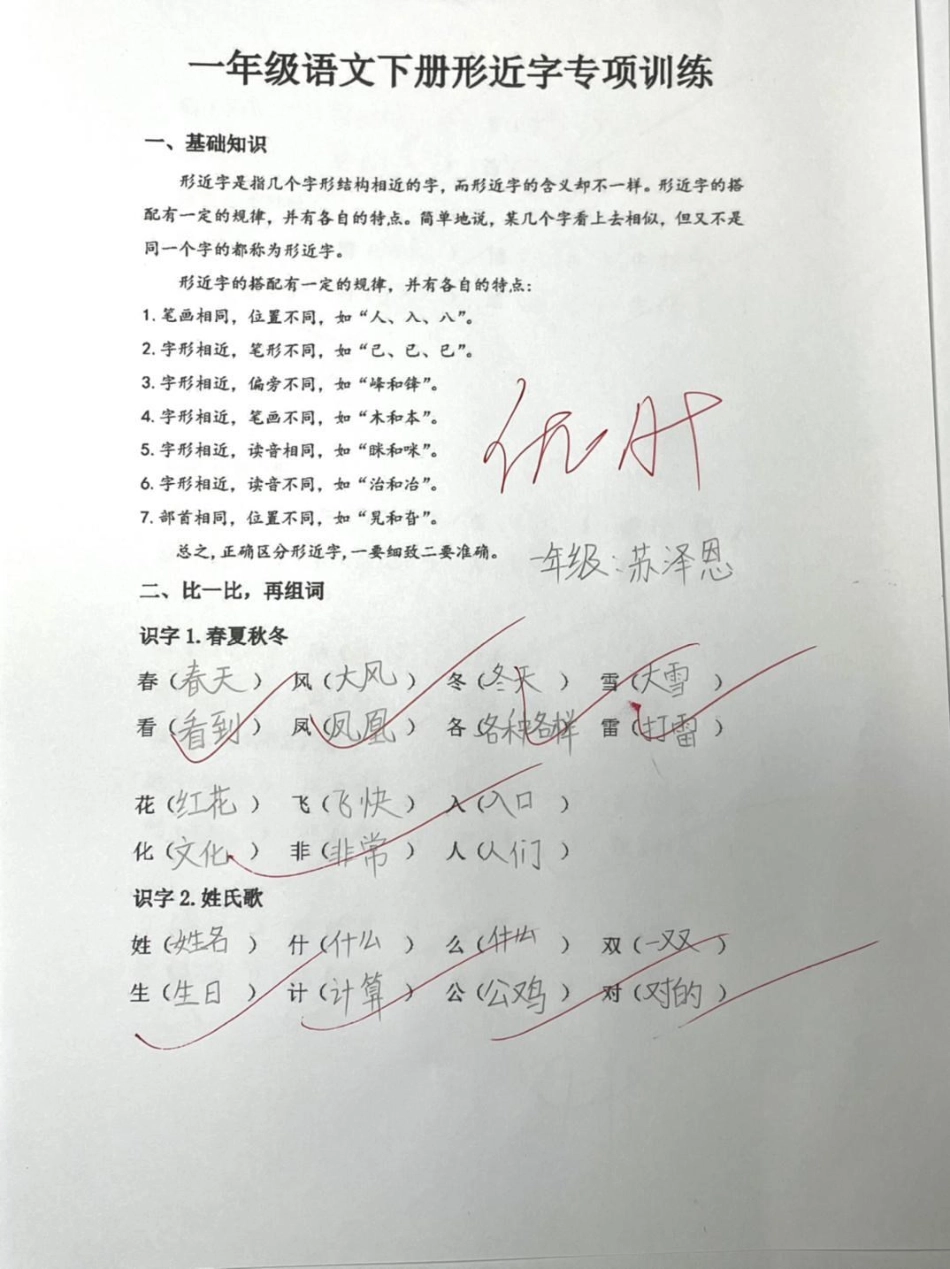 一年级语文下册形近字专项训练
一、基础知识
形近字是指几个字形结构相近的字，而形近字的含义却不一样。形近字的搭
配有一定的规律，并有各自的特点。简单地说，某几个字看上去相似，但又不是
同一个字的都称为形近字。
形近字的搭配有一定的规律，并有各自的特点：
1.笔画相同，位置不同，如“人、入、八”。
2.字形相近，笔形不同，如“己、已、巳”。
3.字形相近，偏旁不同，如“峰和锋”。
4.字形相近，笔画不同，如“木和本”。
5.字形相近，读音相同，如“眯和咪”。
6.字形相近，读音不同，如“治和冶”。
7.部首相同，位置不同，如“旯和旮”。
优 A+
总之，正确区分形近字，一要细致二要准确。
一年级：苏泽恩
二、比一比，再组词
识字 1.春夏秋冬
春（春天） 风（大风） 冬（冬天） 雪（大雪）
看（看到） 凤（凤凰） 各（各种各样） 雷（打雷）
花（红花） 飞（飞快） 入（入口）
化（文化） 非（非常） 人（人们）
识字 2.姓氏歌
姓（姓名） 什（什么） 么（什么） 双（一双）
生（生日） 计（计算） 公（公鸡） 对（对的）